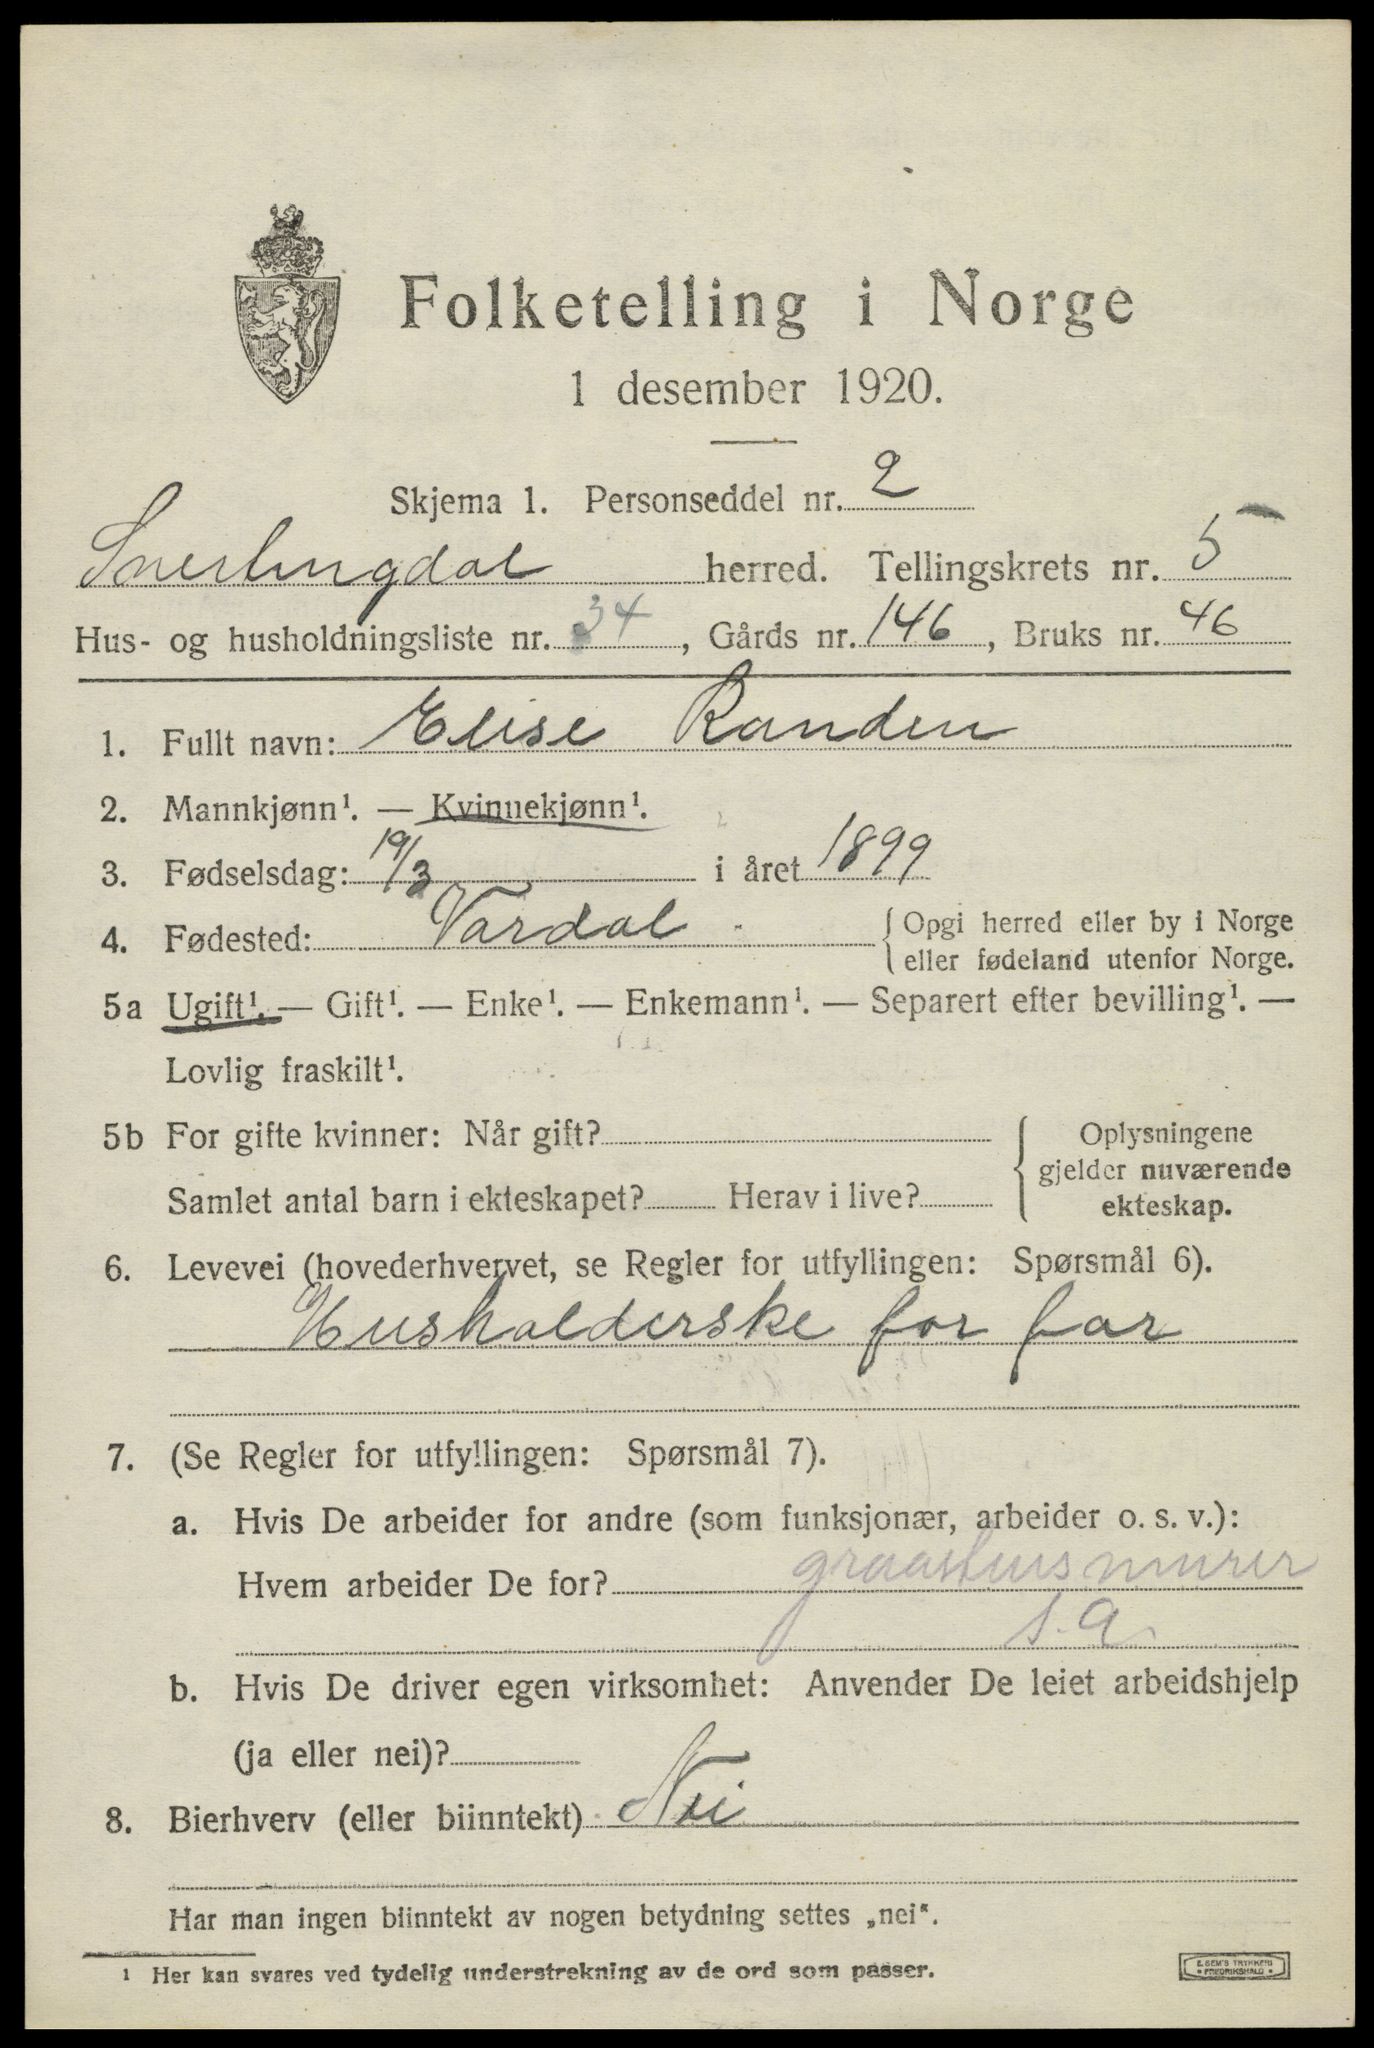 Folketelling i Norge
1 desember 1920.
Skjema 1. Personseddel nr. 2
Snertingdal herred. Tellingskrets nr. 5
Hus- og husholdningsliste nr. 34, Gårds nr. 146, Bruks nr. 46
1. Fullt navn: Elise Randen
2. Mannkjønn¹. — Kvinnekjønn¹.
3. Fødselsdag: 19/3 i året 1899
4. Fødested: Vardal. {Opgi herred eller by i Norge
eller fødeland utenfor Norge.
5a Ugift¹. — Gift¹. — Enke¹. — Enkemann¹. — Separert efter bevilling¹. —
Lovlig fraskilt¹.
5b For gifte kvinner: Når gift?
Samlet antal barn i ekteskapet? Herav i live?
Oplysningene
gjelder nuværende
ekteskap.
6. Levevei (hovederhvervet, se Regler for utfyllingen: Spørsmål 6).
Husholderske for far
7. (Se Regler for utfyllingen: Spørsmål 7).
a. Hvis De arbeider for andre (som funksjonær, arbeider o. s. v.):
Hvem arbeider De for? graastensmurer
s.a.
b. Hvis De driver egen virksomhet: Anvender De leiet arbeidshjelp
(ja eller nei)?
8. Bierhverv (eller biinntekt) Nei
Har man ingen biinntekt av nogen betydning settes „nei".
¹ Her kan svares ved tydelig understrekning av de ord som passer.
E. SEM'S TRYKKERI
• FREDRIKSHALD •